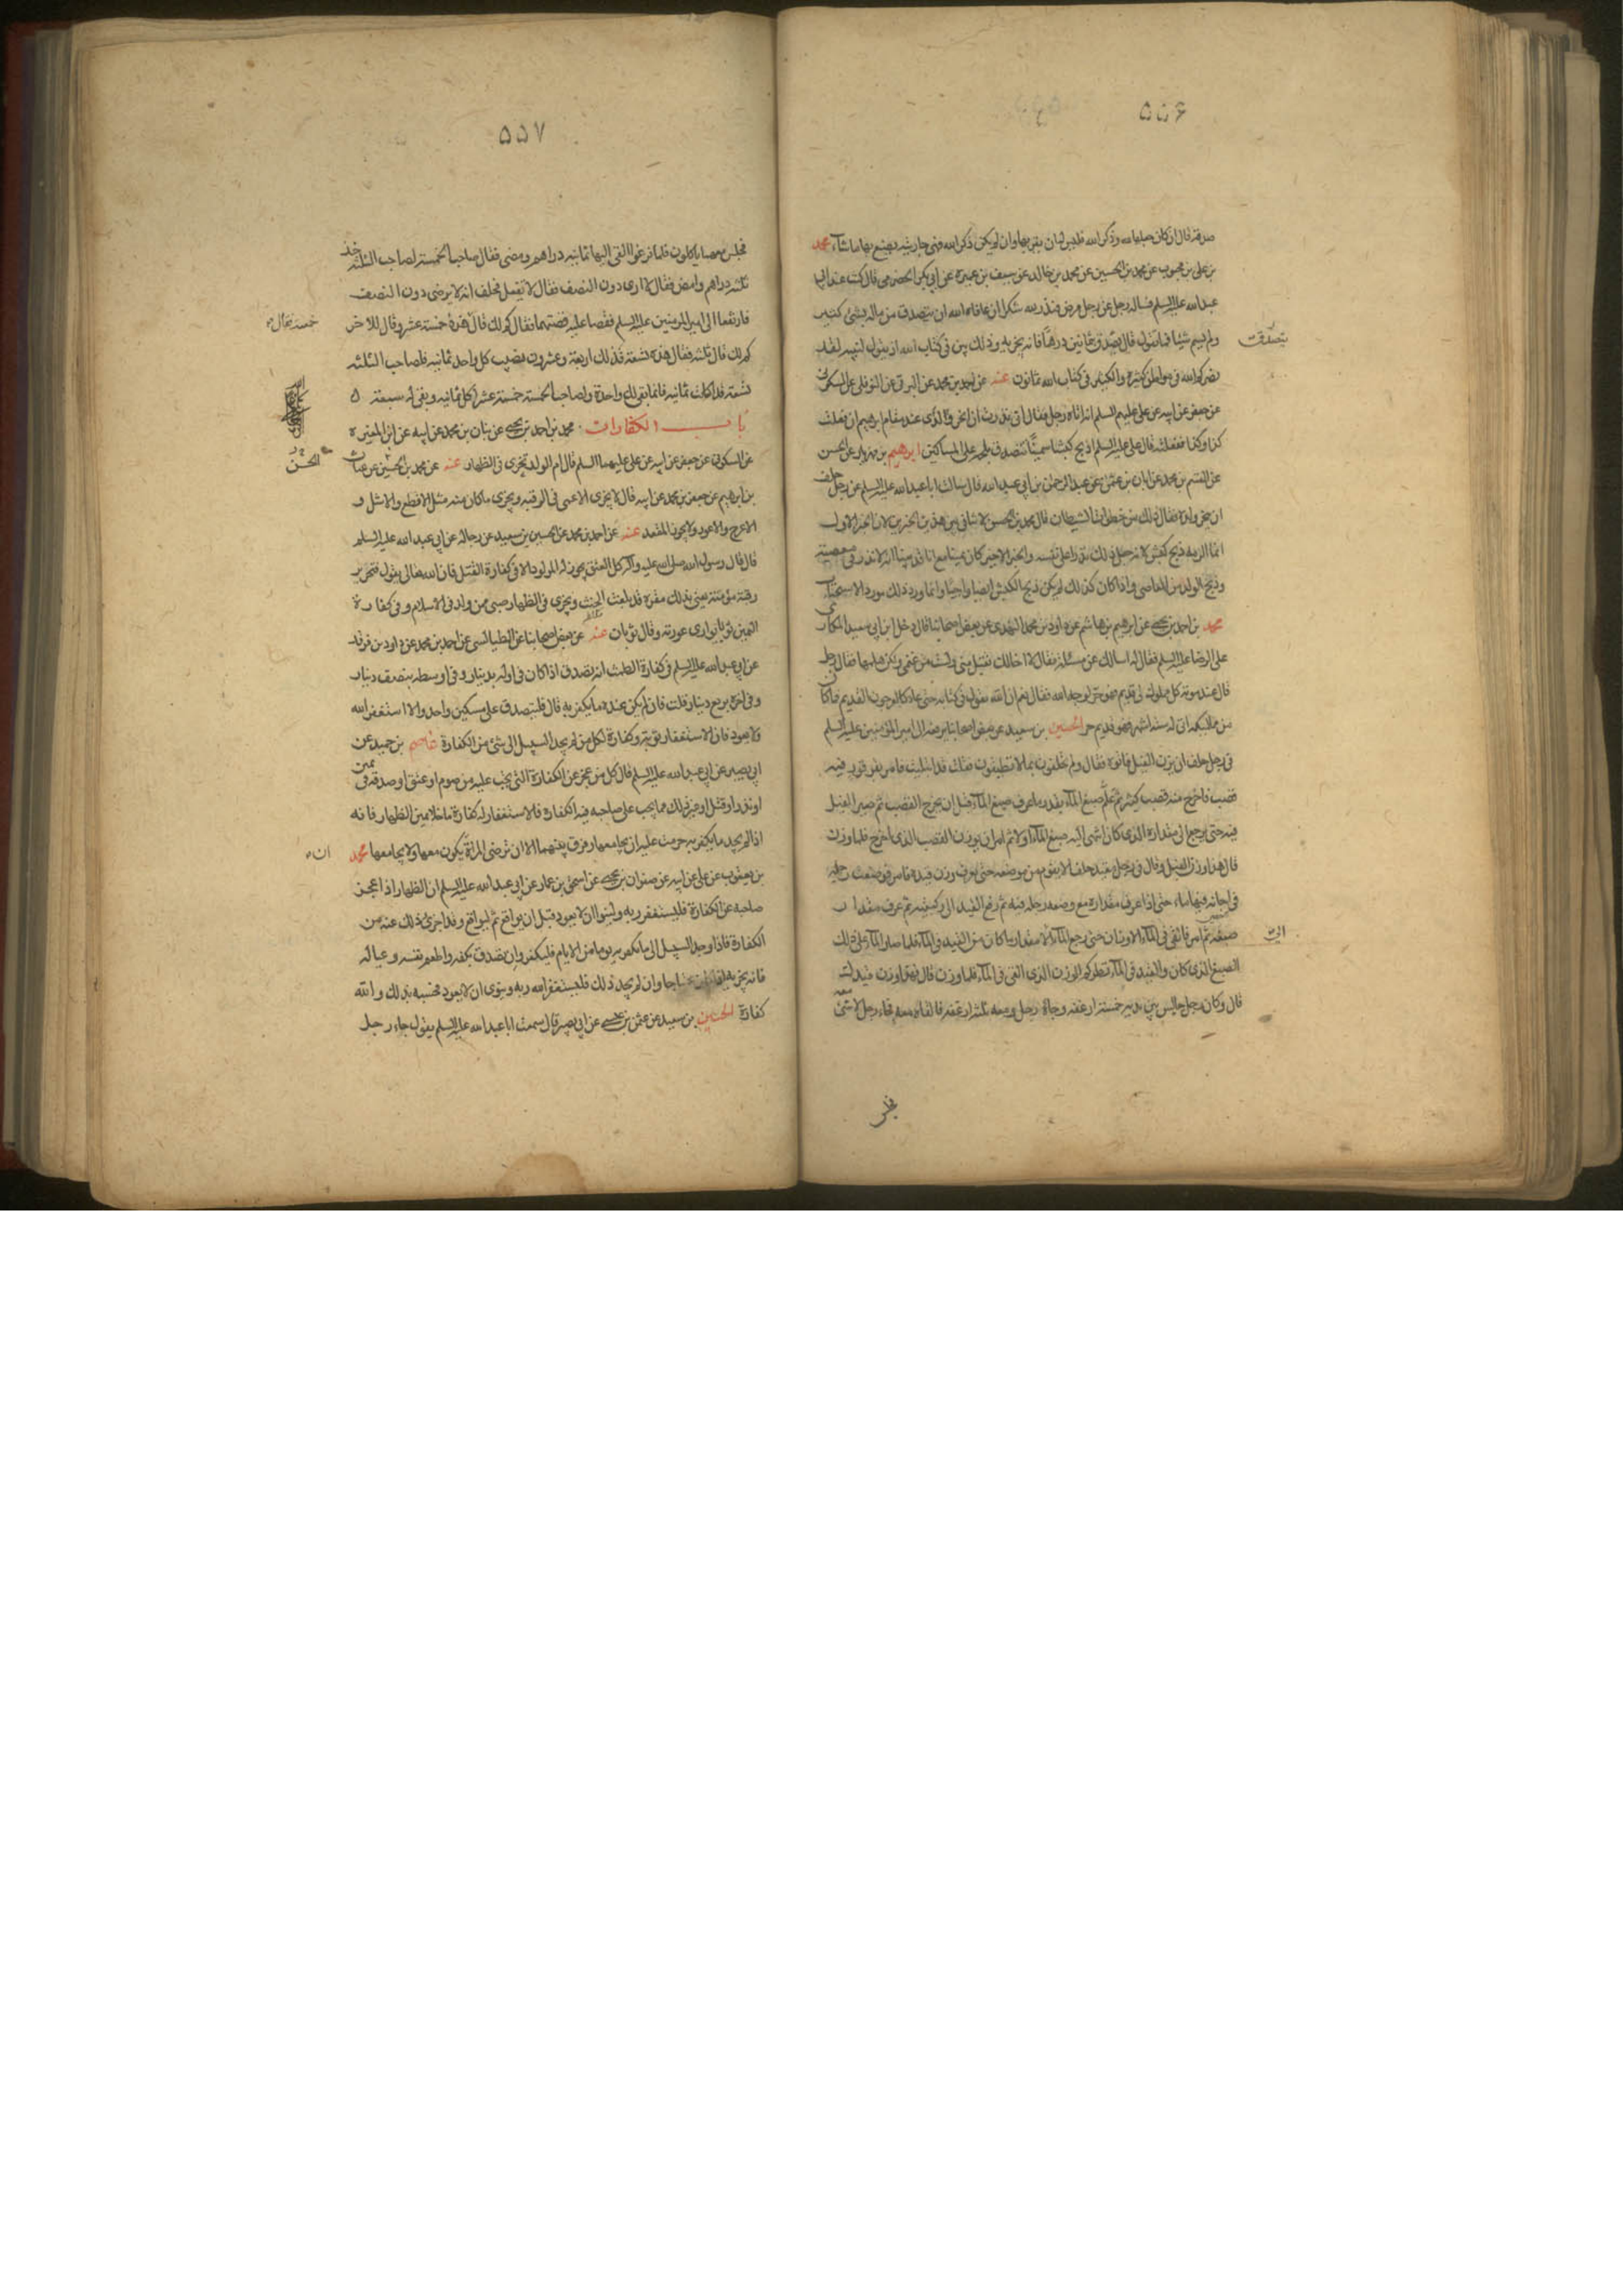 ۵۵۶
صدقة قال ان كان جعلها لله وذكر الله فليس له ان يقربها وان لم يكن ذكر الله فهى جاريته يصنع بها ما شاء محمد
بن على بن محبوب عن محمد بن الحسين عن محمد بن خالد عن سيف بن عميرة عن ابى بكر الحضرمى قال كنت عند ابى
عبد الله عليه السلم فساله رجل عن رجل مرض فنذر لله شكرا ان عافاه الله ان يتصدق من ماله بشئ كثير
ولم يسم شيئا فما تقول قال يتصدق بثمانين درهما فانه يجزيه وذلك بين فى كتاب الله اذ يقول لنبيه لقد
تصدقت
نصركم الله فى مواطن كثيرة والكثيرة فى كتاب الله ثمانون عنه عن احمد بن محمد عن البرقى عن النوفلى عن السكونى
عن جعفر عن ابيه عن على عليهم السلم انه اتاه رجل فقال انى نذرت ان انحر ولدى عند مقام ابرهيم ان فعلت
كذا وكذا ففعلته قال على عليه السلم اذبح كبشا سمينا تتصدق بلحمه على المساكين ابرهيم بن مهزيار عن الحسن
عن القسم بن محمد عن ابان بن عثمن عن عبد الرحمن بن ابى عبد الله قال سالت ابا عبد الله عليه السلم عن رجل حلف
ان ينحر ولده فقال ذلك من خطوات الشيطان قال محمد بن الحسن لا تنافى بين هذين الخبرين لان الخبر الاول
انما الزمه ذبح كبش لانه جعل ذلك نذرا على نفسه والخبر الاخير كان يمينا مع انا قد بينا انه لا نذر فى معصية
وذبح الولد من المعاصى واذا كان كذلك لم يكن ذبح الكبش ايضا واجبا وانما ورد ذلك مورد الاستحباب
محمد بن احمد بن يحيى عن ابرهيم بن هاشم عن داود بن محمد النهدى عن بعض اصحابنا قال دخل ابن ابى سعيد المكارى
على الرضا عليه السلم فقال له اسالك عن مسئلة فقال لا اخالك تقبل منى ولست من غنمى ولكن هلمها فقال رجل
قال عند موته كل مملوك لى قديم فهو حر لوجه الله فقال نعم ان الله يقول فى كتابه حتى عاد كالعرجون القديم فما كان
من مماليكه اتى له ستة اشهر فهو قديم حر الحسين بن سعيد عن بعض اصحابنا يرفعه الى امير المؤمنين عليه السلم
فى رجل حلف ان يزن الفيل فاتوه فقال ولم تحلفون بما لا تطيقون فقلت قد ابتليت فامر بقرقور فيه
قصب فاخرج منه قصب كثير ثم علم صبغ الماء بقدر ما عرف صبغ الماء قبل ان يخرج القصب ثم صير الفيل
فيه حتى رجع الى مقداره الذى كان انتهى اليه صبغ الماء اولا ثم امر ان يوزن القصب الذى اخرج فلما وزن
قال هذا وزن الفيل وقال فى رجل مقيد حلف الا يقوم من موضعه حتى يعرف وزن قيده فامر فوضعت رجله
فى اجانة فيها ماء حتى اذا عرف مقداره مع وضعه رجله فيه ثم رفع القيد الى ركبته ثم عرف مقدار
صبغه ثم امر فالقى فى الماء الاوزان حتى رجع الماء الى مقدار ما كان من القيد فى الماء فلما صار الماء على ذلك
الى
الصبغ الذى كان والقيد فى الماء نظر كم الوزن الذى القى فى الماء فلما وزن قال فهو وزن قيدك
قال وكان رجل جالس بين يديه خمسة ارغفة وجاء رجل ومعه ثلثة ارغفة فالقاه معه فجاء رجل لا شئ معه
فجلس
۵۵۷
فجلس معهما ياكلون فلما فرغوا القى اليهما ثمانية دراهم ومضى فقال صاحب الخمسة لصاحب الثلثة خذ
ثلثة دراهم وامض فقال لا ارى دون النصف فقال لا تفعل فحلف انه لا يرضى دون النصف
فارتفعا الى امير المؤمنين عليه السلم فقصا عليه قصتهما فقال كم لك قال هذه خمسة عشر وقال للاخر
خمسة فقال
كم لك قال ثلثة فقال هذه تسعة فذلك اربعة وعشرون يصيب كل واحد ثمانية فلصاحب الثلثة
تسعة قد اكلت ثمانية فانما بقى لك واحدة ولصاحب الخمسة خمسة عشر اكل ثمانية وبقى له سبعة
باب الكفارات محمد بن احمد بن يحيى عن بنان بن محمد عن ابيه عن ابن المغيرة
عن السكونى عن جعفر عن ابيه عن على عليهما السلم قال ام الولد تجزى فى الظهار عنه عن محمد بن الحسين عن غياث
الحسن
بن ابرهيم عن جعفر بن محمد عن ابيه قال لا يجزى الاعمى فى الرقبة ويجزى ما كان منه مثل الاقطع والاشل و
الاعرج والاعور ولا يجوز المقعد عنه عن احمد بن محمد عن الحسين بن سعيد عن رجاله عن ابى عبد الله عليه السلم
قال قال رسول الله صلى الله عليه وآله كل العتق يجوز له المولود الا فى كفارة القتل فان الله تعالى يقول فتحرير
رقبة مؤمنة يعنى بذلك مقرة قد بلغت الحنث ويجزى فى الظهار صبى ممن ولد فى الاسلام وفى كفارة
اليمين ثوب يوارى عورته وقال ثوبان عنه عن بعض اصحابنا عن الطيالسى عن احمد بن محمد عن داود بن فرقد
عن ابى عبد الله عليه السلم فى كفارة الطمث انه يتصدق اذا كان فى اوله بدينار وفى اوسطه بنصف دينار
وفى اخره بربع دينار قلت فان لم يكن عنده ما يكفر به قال فليتصدق على مسكين واحد والا استغفر الله
ولا يعود فان الاستغفار توبة وكفارة لكل من لم يجد السبيل الى شئ من الكفارة عاصم بن حميد عن
ابى بصير عن ابى عبد الله عليه السلم قال كل من عجز عن الكفارة التى تجب عليه من صوم او عتق او صدقة فى يمين
او نذر او قتل او غير ذلك مما يجب على صاحبه فيه الكفارة فالاستغفار له كفارة ما خلا يمين الظهار فانه
اذا لم يجد ما يكفر به حرمت عليه ان يجامعها وفرق بينهما الا ان ترضى المراة يكون معها ولا يجامعها محمد
ان
بن يعقوب عن على عن ابيه عن صفوان بن يحيى عن اسحق بن عمار عن ابى عبد الله عليه السلم ان الظهار اذا عجز
صاحبه عن الكفارة فليستغفر ربه ولينو الا يعود قبل ان يواقع ثم ليواقع وقد اجزى ذلك عنه من
الكفارة فاذا وجد السبيل الى ما يكفر به يوما من الايام فليكفر وان تصدق بكفه واطعم نفسه وعياله
فانه يجزيه اذا كان محتاجا وان لم يجد ذلك فليستغفر الله ربه وينوى ان لا يعود فحسبه بذلك والله
كفارة الحسين بن سعيد عن عثمن بن عيسى عن ابى بصير قال سمعت ابا عبد الله عليه السلم يقول جاء رجل